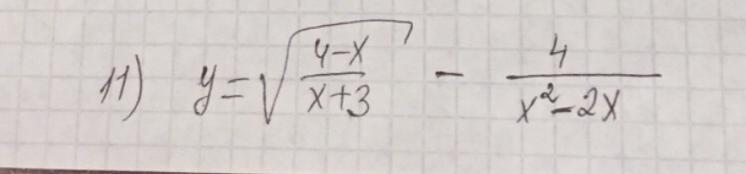 11) y = √((4-x)/(x+3)) - 4/(x²-2x)